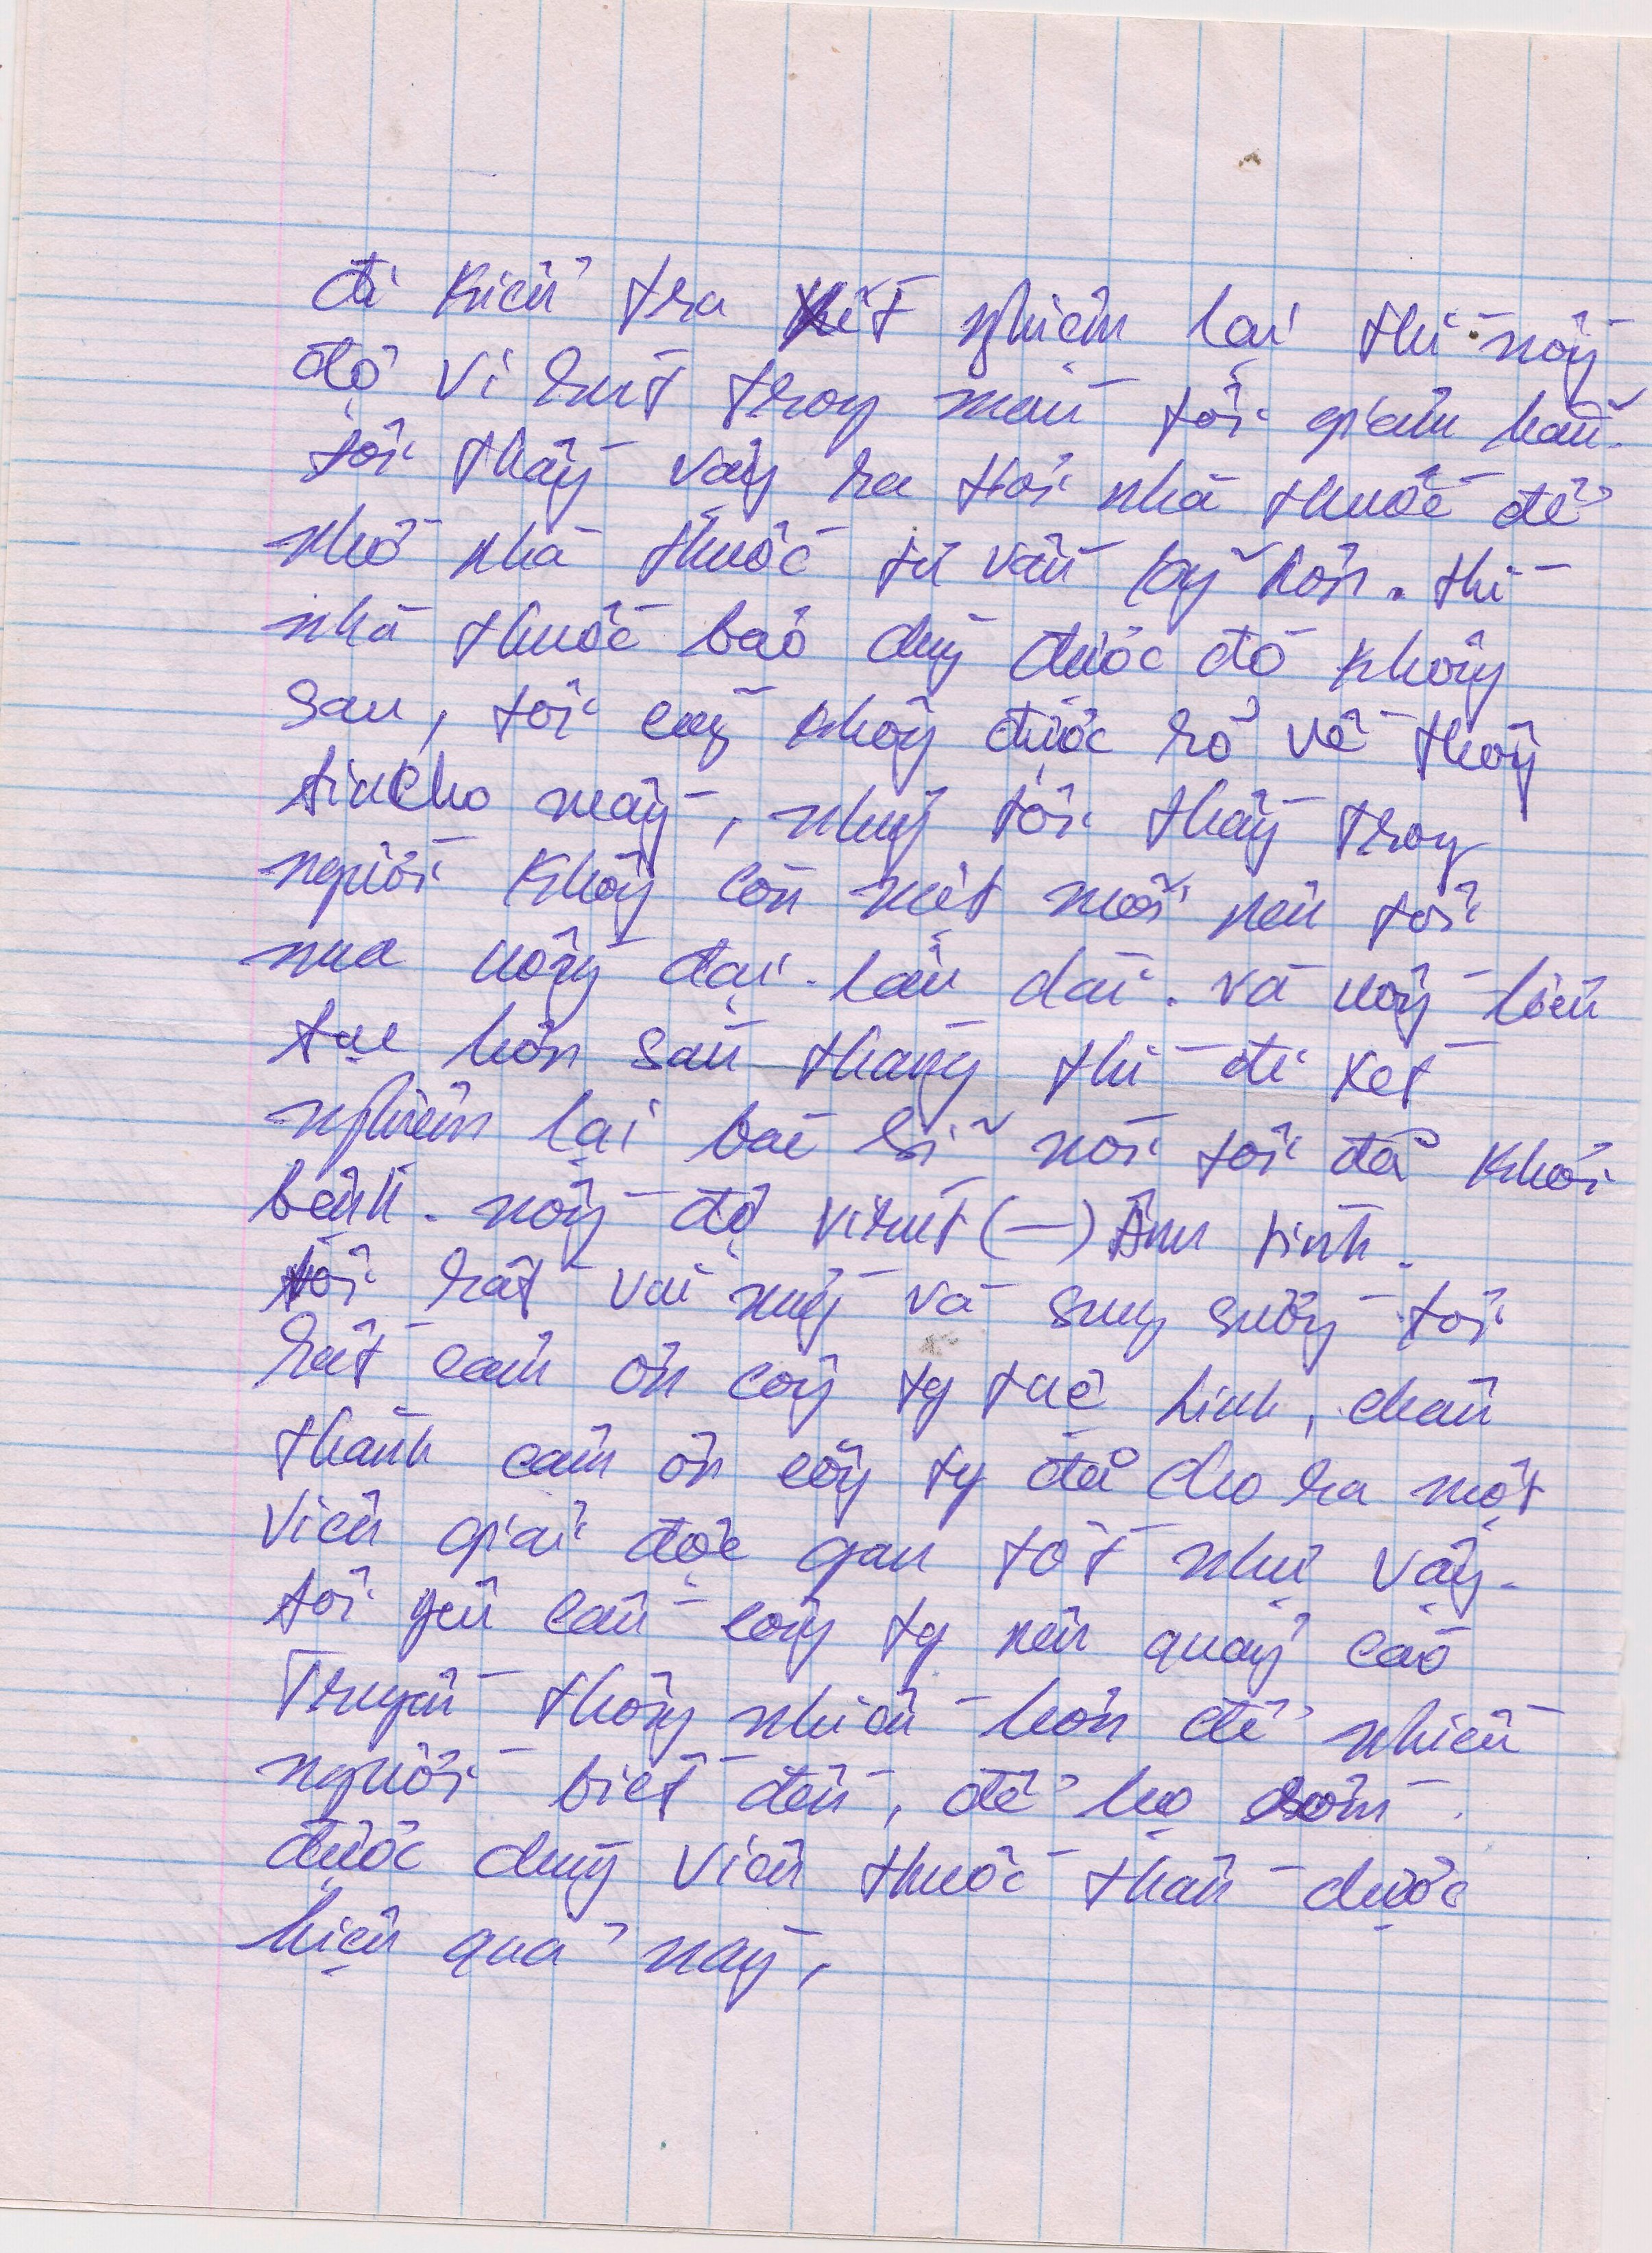 đi kiểm tra xét nghiệm lại thì nồng
độ vi rút trong máu tôi giảm hẳn.
tôi thấy vậy ra tới nhà thuốc để
nhờ nhà thuốc tư vấn kỹ hơn. thì
nhà thuốc bảo dùng được đó không
sau, tôi cũng không được rõ về thông
tin cho mấy, nhưng tôi thấy trong
người không còn mệt mỏi nên tôi
mua uống đại. lâu dài. và uống liên
tục hơn sáu tháng thì đi xét
nghiệm lại bác sĩ nói tôi đã khỏi
bệnh. nồng độ virut (-) Âm tính.
tôi rất vui mừng và sung sướng tôi
rất cảm ơn công ty tuệ Linh, chân
thành cảm ơn công ty đã cho ra một
viên giải độc gan tốt như vậy.
tôi yêu cầu công ty nên quảng cáo
Truyền thông nhiều hơn để nhiều
người biết đến, để họ sớm
được dùng viên thuốc thần dược
hiệu quả này,